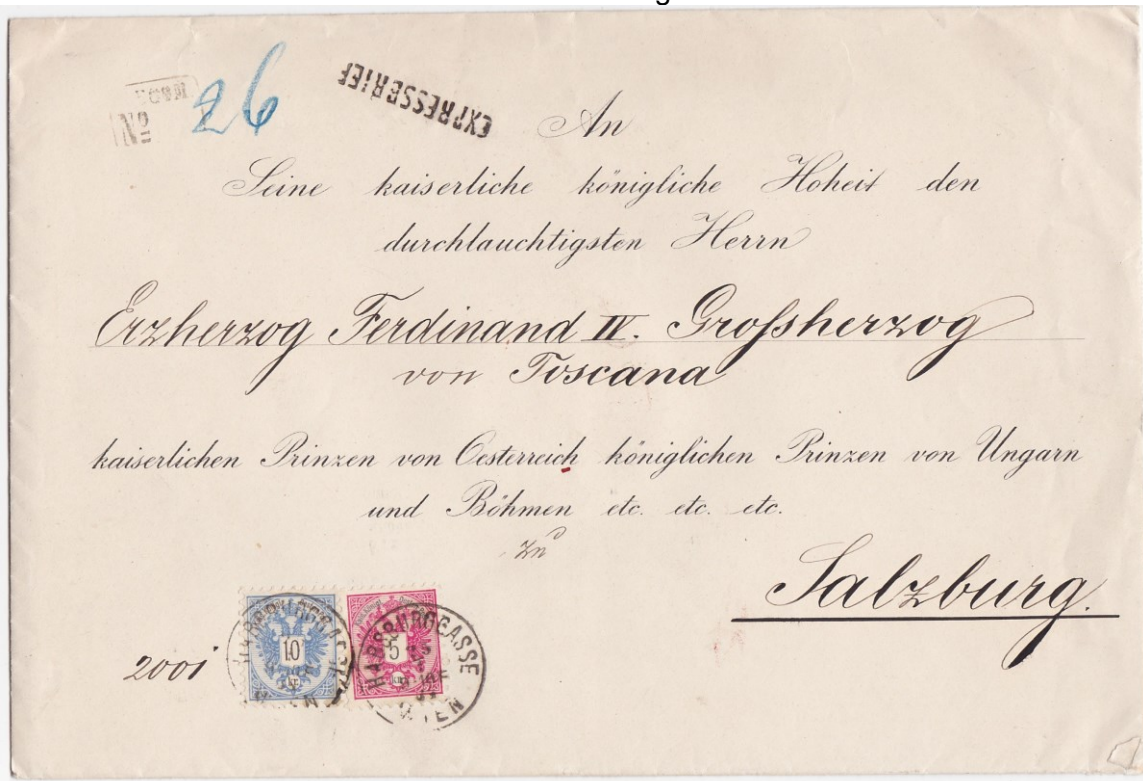 No
26
EXPRESSBRIEF
An
Seine kaiserliche königliche Hoheit den
durchlauchtigsten Herrn
Erzherzog Ferdinand IV. Großherzog
von Toscana
kaiserlichen Prinzen von Oesterreich königlichen Prinzen von Ungarn
und Böhmen etc. etc. etc.
zu
Salzburg.
2001
10
kr.
5
kr.
HABSBURGGASSE
WIEN
HABSBURGGASSE
WIEN